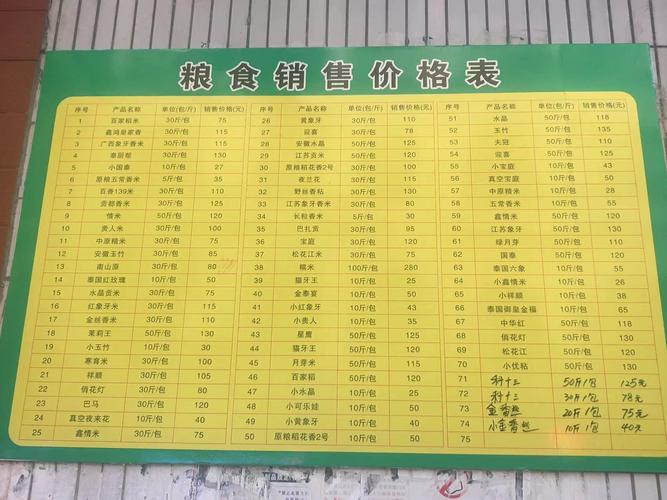 粮食销售价格表
序号 产品名称 单位(包/斤) 销售价格(元)
1 百家稻米 30斤/包 75
2 鑫鸿皇家香 30斤/包 115
3 广西象牙香米 30斤/包 115
4 泰厨帮 30斤/包 135
5 小国泰 10斤/包 27
6 原粮五常香米 5斤/包 35
7 百香139米 30斤/包 115
8 贡都香米 30斤/包 125
9 情米 50斤/包 120
10 贵人米 30斤/包 100
11 中原糯米 30斤/包 75
12 安徽玉竹 30斤/包 85
13 南山原 30斤/包 80
14 泰国红玫瑰 10斤/包 50
15 水晶贡米 30斤/包 75
16 红象牙米 30斤/包 90
17 金丝香米 30斤/包 115
18 茉莉王 50斤/包 130
19 小玉竹 10斤/包 30
20 寒育米 30斤/包 100
21 祥顺 50斤/包 130
22 俏花灯 30斤/包 80
23 巴马 30斤/包 120
24 真空夜来花 10斤/包 40
25 鑫情米 30斤/包 75
序号 产品名称 单位(包/斤) 销售价格(元)
26 黄象牙 30斤/包 110
27 迎喜 30斤/包 78
28 安徽水晶 50斤/包 125
29 江苏贡米 50斤/包 125
30 原粮稻花香2号 30斤/包
31 夜兰花 30斤/包 115
32 野丝香粘 30斤/包 130
33 江苏象牙香米 30斤/包 80
34 长粒香米 5斤/包 30
35 巴贡 30斤/包 95
36 宝庭 30斤/包 120
37 松花江米 30斤/包 90
38 糯米 100斤/包 280
39 猫牙王 10斤/包 50
40 金泰宴 10斤/包 50
41 小红象牙 10斤/包 43
42 小贵人 10斤/包 35
43 星鹰 50斤/包 120
44 猫牙王 30斤/包 130
45 月芽米 30斤/包 115
46 百家稻 50斤/包 120
47 小水晶 10斤/包 30
48 小可乐娃 10斤/包 50
49 小黄象牙 10斤/包 40
50 原粮稻花香2号 10斤/包 50
序号 产品名称 单位(包/斤) 销售价格(元)
51 水晶 50斤/包 118
52 玉竹 50斤/包 135
53 夫冠 50斤/包 110
54 迎喜 50斤/包 125
55 小宝庭 10斤/包 43
56 真空宝庭 10斤/包 50
57 中原糯米 10斤/包 28
58 五常香米 10斤/包 55
59 鑫情米 50斤/包 120
60 江苏象牙 50斤/包 130
61 绿月芽 50斤/包 120
62 国泰 50斤/包 120
63 泰国六象 10斤/包 55
64 小鑫情米 10斤/包 26
65 小祥顺 10斤/包 38
66 泰国御皇金福 10斤/包 65
67 中华红 50斤/包 118
68 俏花灯 50斤/包 130
69 松花江 50斤/包 130
70 小优粘 10斤/包 30
71 科十三 50斤1包 125元
72 科十三 30斤1包 78元
73 金香丝 20斤1包 75元
74 小金香丝 10斤1包 40元